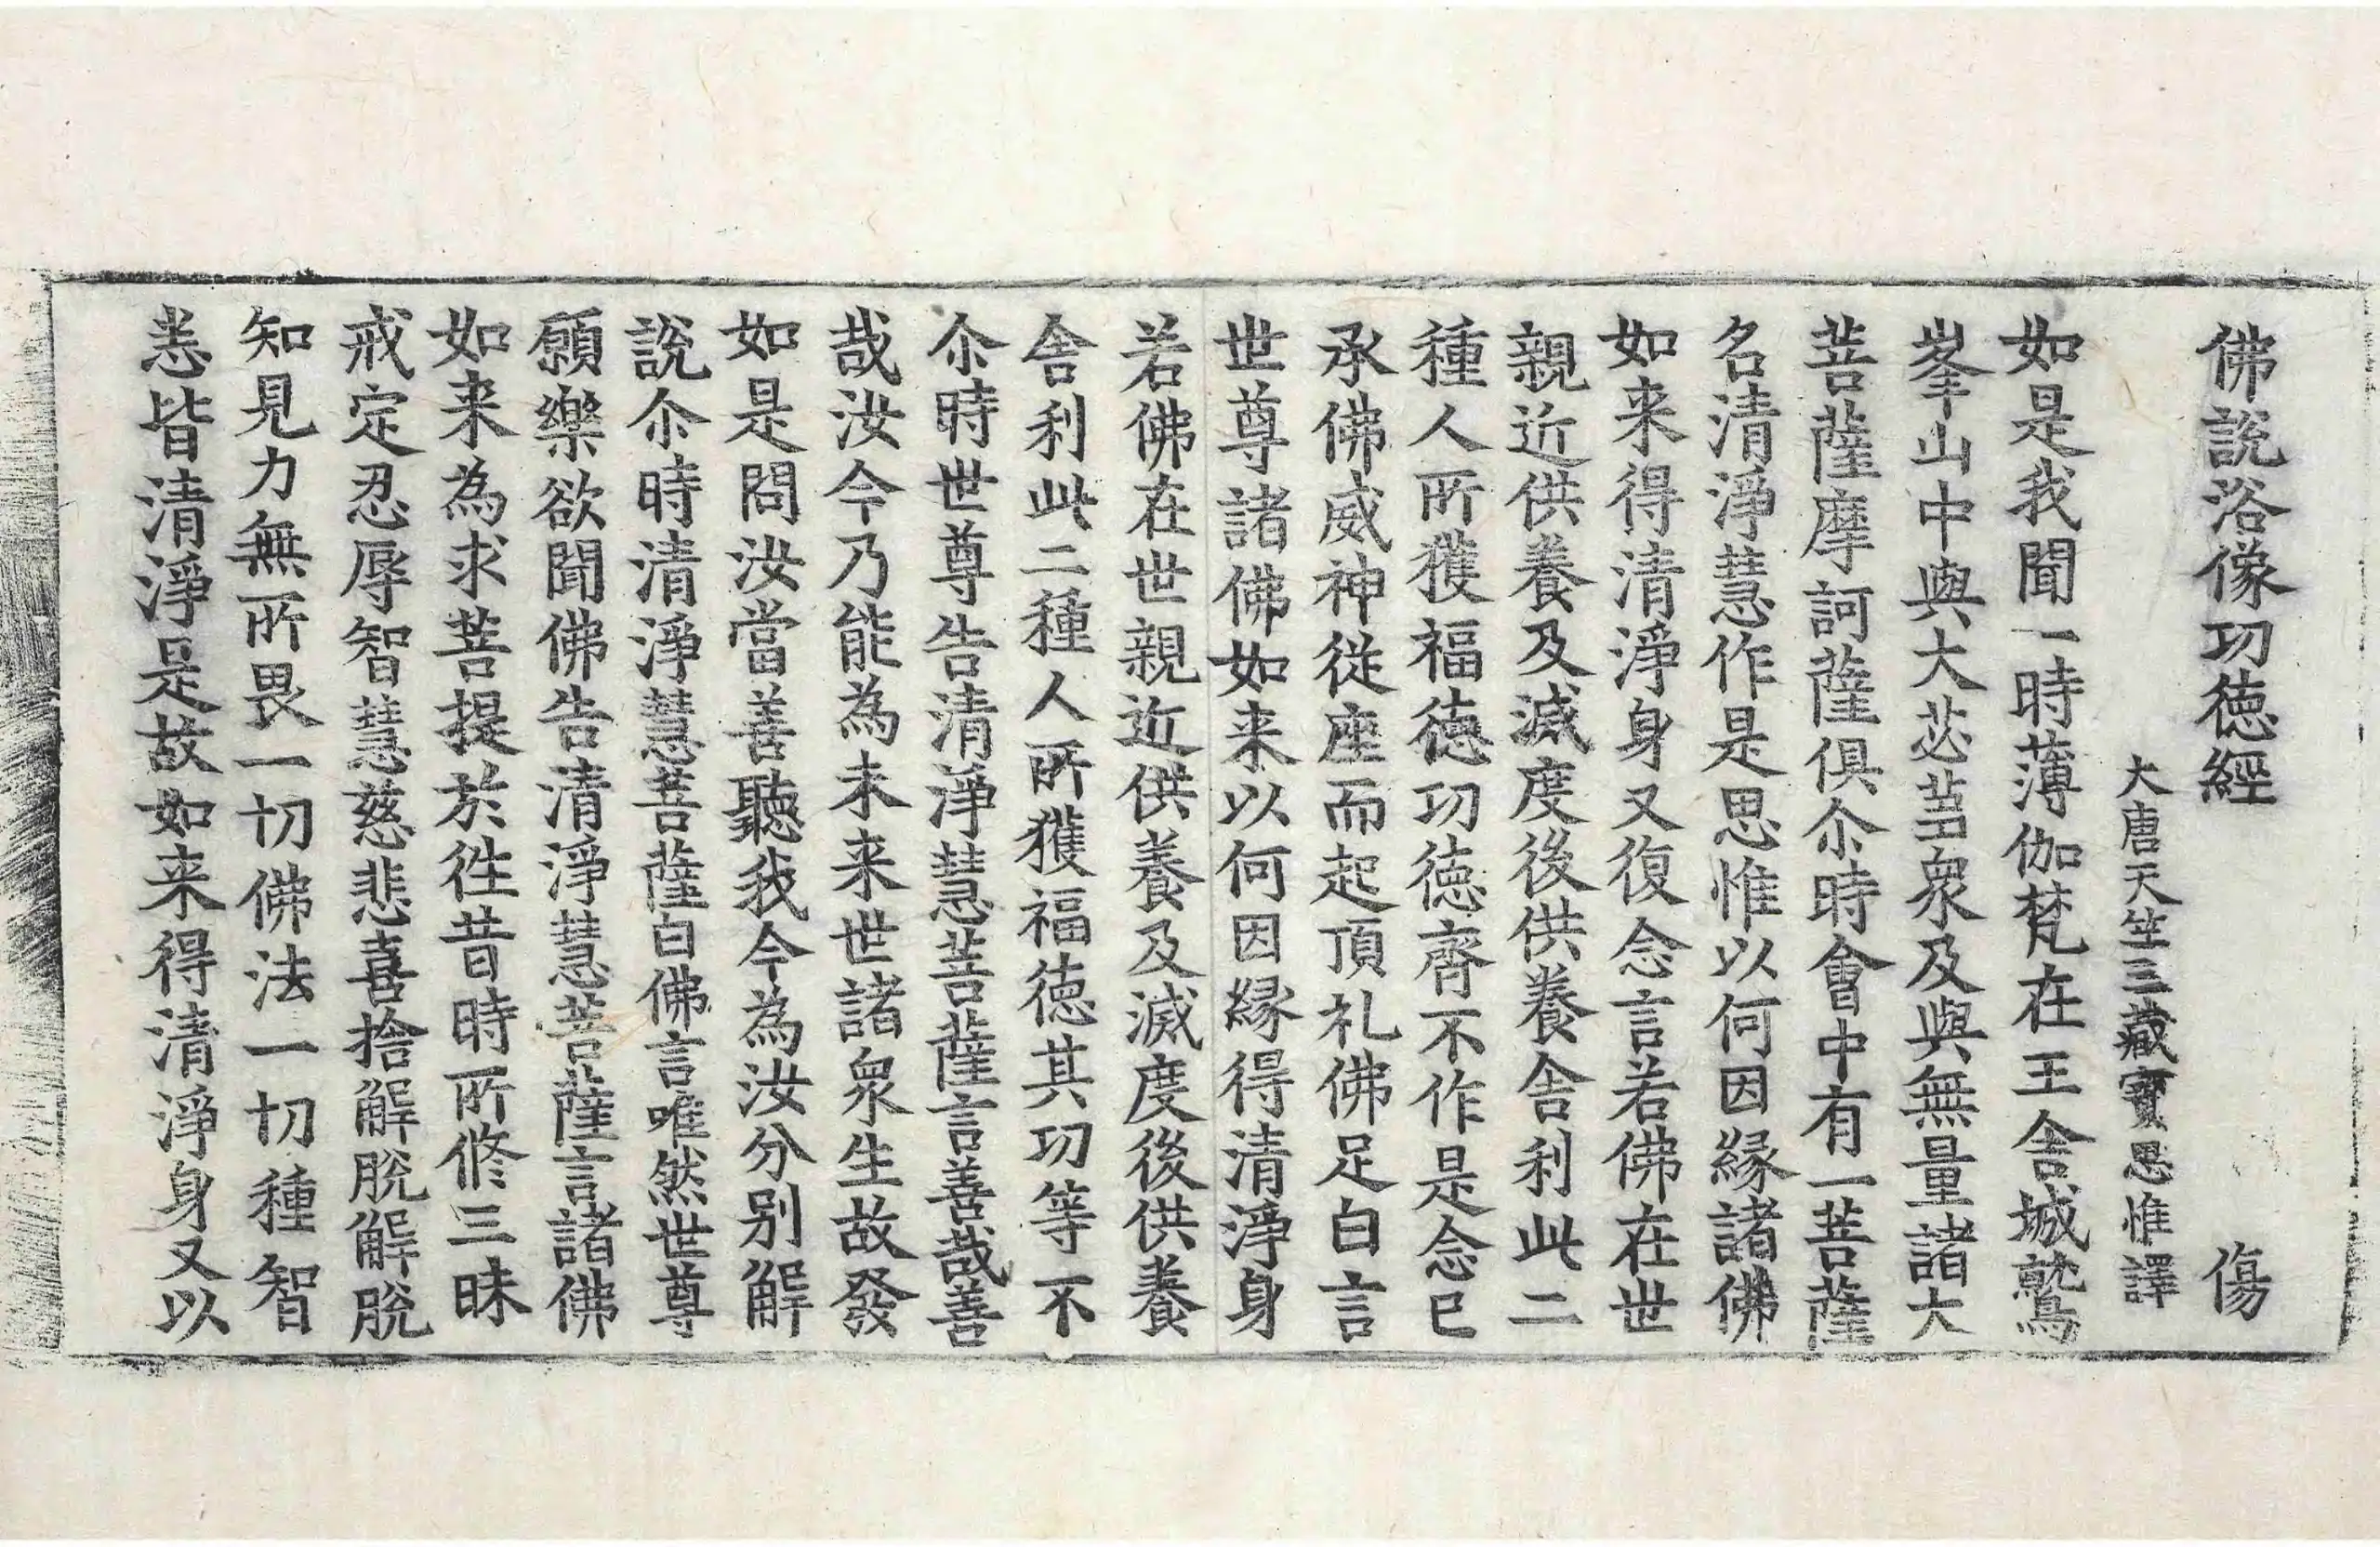 佛說浴像功徳經　傷
大唐天竺三藏寶思惟譯
如是我聞一時薄伽梵在王舍城鷲
峯山中與大苾芻衆及與無量諸大
菩薩摩訶薩俱尒時會中有一菩薩
名清淨慧作是思惟以何因緣諸佛
如来得清淨身又復念言若佛在世
親近供養及滅度後供養舍利此二
種人所獲福徳功徳齊不作是念已
承佛威神従座而起頂礼佛足白言
世尊諸佛如来以何因緣得清淨身
若佛在世親近供養及滅度後供養
舍利此二種人所獲福徳其功等不
尒時世尊告清淨慧菩薩言善哉善
哉汝今乃能為未来世諸衆生故發
如是問汝當善聽我今為汝分别解
說尒時清淨慧菩薩白佛言唯然世尊
願樂欲聞佛告清淨慧菩薩言諸佛
如来為求菩提於往昔時所修三昧
戒定忍辱智慧慈悲喜捨解脫解脫
知見力無所畏一切佛法一切種智
悉皆清淨是故如来得清淨身又以